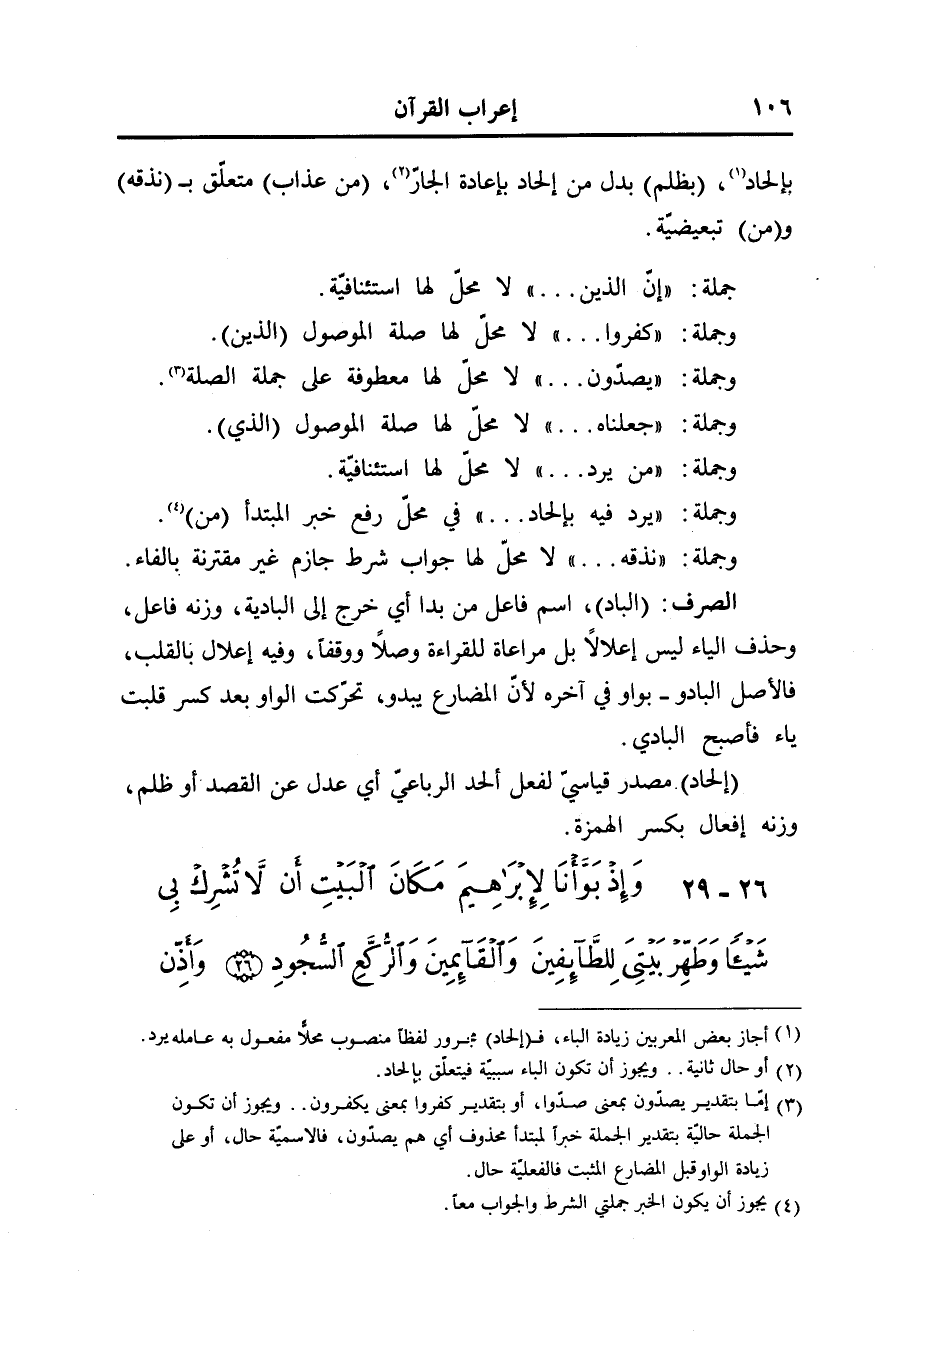 ١٠٦ إعراب القرآن
بإلحاد(١)، (بظلم) بدل من إلحاد بإعادة الجارّ(٢)، (من عذاب) متعلّق بـ (نذقه)
و(من) تبعيضيّة.
جملة: «إنّ الذين...» لا محلّ لها استئنافيّة.
وجملة: «كفروا...» لا محلّ لها صلة الموصول (الذين).
وجملة: «يصدّون...» لا محلّ لها معطوفة على جملة الصلة(٣).
وجملة: «جعلناه...» لا محلّ لها صلة الموصول (الذي).
وجملة: «من يرد...» لا محلّ لها استئنافيّة.
وجملة: «يرد فيه بإلحاد...» في محلّ رفع خبر المبتدأ (من)(٤).
وجملة: «نذقه...» لا محلّ لها جواب شرط جازم غير مقترنة بالفاء.
الصرف: (الباد)، اسم فاعل من بدا أي خرج إلى البادية، وزنه فاعل،
وحذف الياء ليس إعلالاً بل مراعاة للقراءة وصلاً ووقفاً، وفيه إعلال بالقلب،
فالأصل البادو ـ بواو في آخره لأنّ المضارع يبدو، تحرّكت الواو بعد كسر قلبت
ياء فأصبح البادي.
(إلحاد) مصدر قياسيّ لفعل ألحد الرباعيّ أي عدل عن القصد أو ظلم،
وزنه إفعال بكسر الهمزة.
٢٦ ـ ٢٩ وَإِذْ بَوَّأْنَا لِإِبْرَٰهِيمَ مَكَانَ ٱلْبَيْتِ أَن لَّا تُشْرِكْ بِى
شَيْـًٔا وَطَهِّرْ بَيْتِىَ لِلطَّآئِفِينَ وَٱلْقَآئِمِينَ وَٱلرُّكَّعِ ٱلسُّجُودِ ﴿٢٦﴾ وَأَذِّن
(١) أجاز بعض المعربين زيادة الباء، فـ(إلحاد) مجرور لفظاً منصوب محلاًّ مفعول به عامله يرد.
(٢) أو حال ثانية.. ويجوز أن تكون الباء سببيّة فيتعلّق بإلحاد.
(٣) إمّا بتقدير يصدّون بمعنى صدّوا، أو بتقدير كفروا بمعنى يكفرون.. ويجوز أن تكون
الجملة حاليّة بتقدير الجملة خبراً لمبتدأ محذوف أي هم يصدّون، فالاسميّة حال، أو على
زيادة الواو قبل المضارع المثبت فالفعليّة حال.
(٤) يجوز أن يكون الخبر جملتي الشرط والجواب معاً.